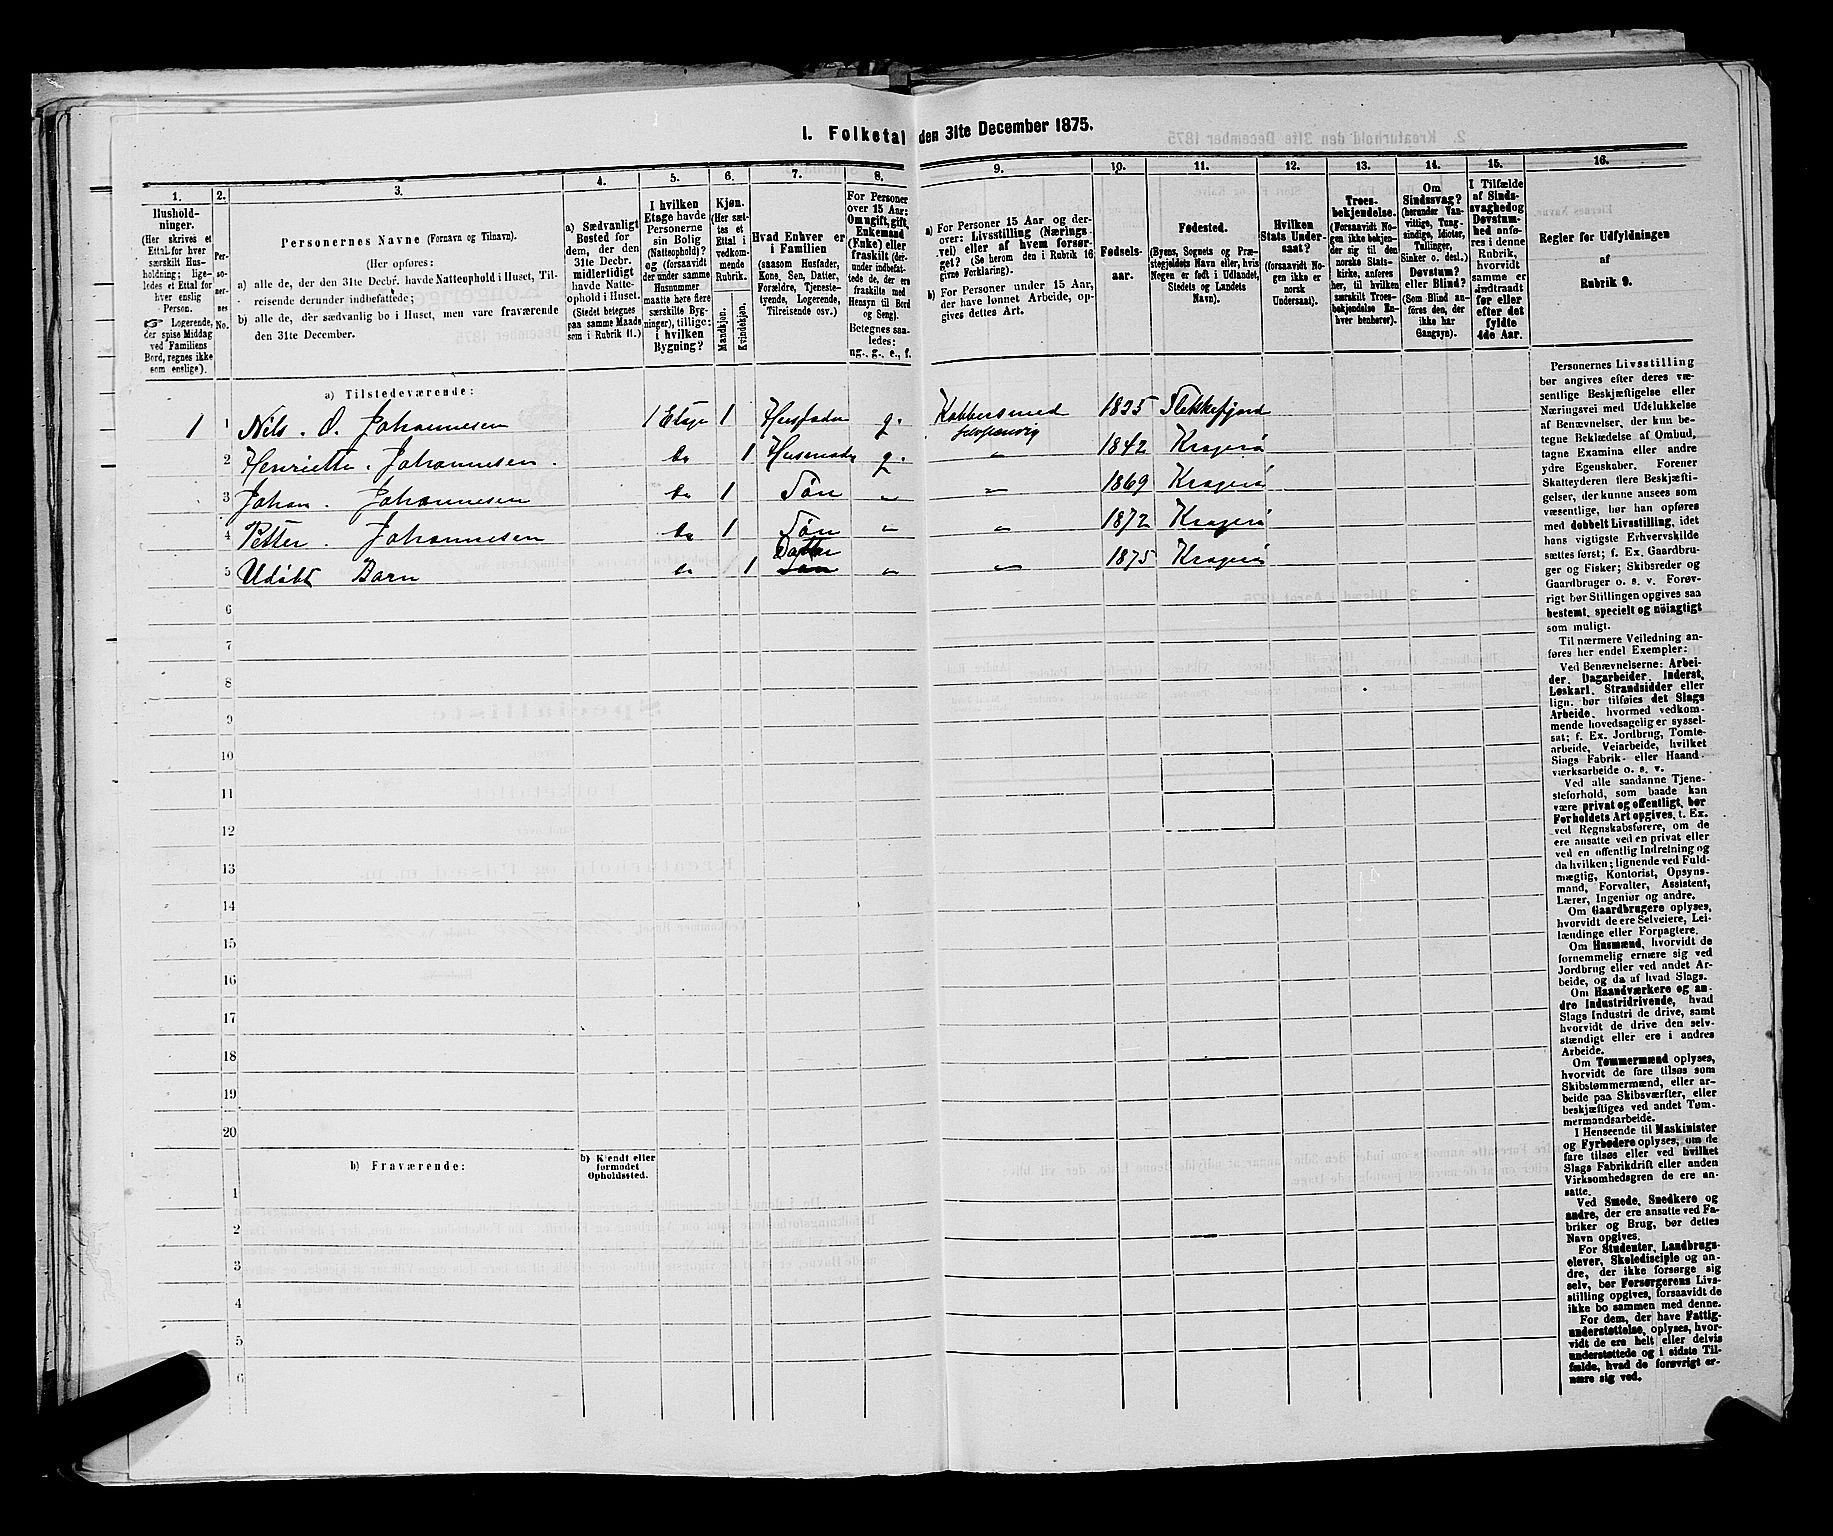 I. Folketal den 31te December 1875.
1. 2. 3. 4. 5. 6. 7. 8. 9. 10. 11. 12. 13. 14. 15. 16.
Hushold-
ninger.
(Her skrives et
Ettal for hver
særskilt Hus-
holdning; lige-
ledes et Ettal for
hver enslig
Person.
☞ Logerende,
der spise Middag
ved Familiens
Bord, regnes ikke
som enslige).
Per-
so-
ner-
nes
No.
Personernes Navne (Fornavn og Tilnavn).
(Her opføres:
a) alle de, der den 31te Decbr. havde Natteophold i Huset, Til-
reisende derunder indbefattede;
b) alle de, der sædvanlig bo i Huset, men vare fraværende
den 31te December.
a) Sædvanligt
Bosted for
dem, der den
31te Decbr.
midlertidigt
havde Natte-
ophold i Huset.
(Stedet betegnes
paa samme Maade
som i Rubrik 11.)
I hvilken
Etage havde
Personerne
sin Bolig
(Natteophold)?
og (forsaavidt
der under samme
Husnummer
maatte høre flere
særskilte Byg-
ninger), tillige:
i hvilken
Bygning?
Kjøn.
(Her sæt-
tes et
Ettal i
vedkom-
mende
Rubrik.
Mandkjøn.
Kvindekjøn.
Hvad Enhver er
i Familien
(saasom Husfader,
Kone, Søn, Datter,
Forældre, Tjeneste-
tyende, Logerende,
Tilreisende osv.)
For Personer
over 15 Aar:
Om ugift, gift,
Enkemand
(Enke) eller
fraskilt (der-
under indbefat-
tede de, der ere
fraskilte med
Hensyn til Bord
og Seng).
Betegnes saa-
ledes:
ug., g., e., f.
a) For Personer 15 Aar og der-
over: Livsstilling (Nærings-
vei) eller af hvem forsør-
get? (Se herom den i Rubrik 16
givne Forklaring).
b) For Personer under 15 Aar,
der have lønnet Arbeide, op-
gives dettes Art.
Fødsels-
aar.
Fødested.
(Byens, Sognets og Præ-
stegjeldets Navn eller, hvis
Nogen er født i Udlandet,
Stedets og Landets
Navn).
Hvilken
Stats Under-
saat?
(forsaavidt No-
gen ikke er
norsk
Undersaat).
Troes-
bekjendelse.
(Forsaavidt No-
gen ikke bekjen-
der sig til den
norske Stats-
kirke, anføres
her, til hvilken
særskilt Troes-
bekjendelse En-
hver henhører).
Om
Sindssvag?
(herunder Van-
vittige, Tung-
sindige, Idioter,
Tullinger,
Sinker o. desl.)
Døvstum?
eller Blind?
(Som Blind an-
føres den, der
ikke har
Gangsyn).
I Tilfælde
af Sinds-
svaghed og
Døvstum-
hed anfø-
res i denne
Rubrik,
hvorvidt
samme er
indtraadt
før eller
efter det
fyldte
4de Aar.
Regler for Udfyldningen
af
Rubrik 9.
a) Tilstedeværende:
1 1 Nils. O. Johannesen 1 Etage 1 Husfader g. Kobbersmed 1825 Flekkefjord
2 Henriette. Johannesen. do 1 Husmoder g. " 1842 Kragerø
3 Johan. Johannesen do 1 Søn " " 1869 Kragerø
4 Petter. Johannesen do 1 Søn " " 1872 Kragerø
5 Udøbt Barn do 1 Datter Søn " " 1875 Kragerø
6
7
8
9
10
11
12
13
14
15
16
17
18
19
20
b) Fraværende:
b) Kjendt eller
formodet
Opholdssted.
1
2
3
4
5
6
Personernes Livsstilling
bør angives efter deres væ-
sentlige Beskjæftigelse eller
Næringsvei med Udelukkelse
af Benævnelser, der kun be-
tegne Beklædelse af Ombud,
tagne Examina eller andre
ydre Egenskaber. Forener
Skatteyderen flere Beskjæfti-
gelser, der kunne ansees som
væsentlige, bør han opføres
med dobbelt Livsstilling, idet
hans vigtigste Erhvervskilde
sættes først; f. Ex. Gaardbru-
ger og Fisker; Skibsreder og
Gaardbruger o. s. v. Forøv-
rigt bør Stillingen opgives saa
bestemt, specielt og nöiagtigt
som muligt.
Til nærmere Veiledning an-
føres her endel Exempler:
Ved Benævnelserne: Arbei-
der, Dagarbeider, Inderst,
Løskarl, Strandsidder eller
lign. bør tilføies det Slags
Arbeide, hvormed vedkom-
mende hovedsagelig er syssel-
sat; f. Ex. Jordbrug, Tomte-
arbeide, Veiarbeide, hvilket
Slags Fabrik- eller Haand-
værksarbeide o. s. v.
Ved alle saadanne Tjene-
steforhold, som baade kan
være privat og offentligt, bør
Forholdets Art opgives, t. Ex.
ved Regnskabsførere, om de
ere ansatte ved en privat eller
ved en offentlig Indretning og
da hvilken; lignende ved Fuld-
mægtig, Kontorist, Opsyns-
mand, Forvalter, Assistent,
Lærer, Ingeniør og andre.
Om Gaardbrugere oplyses,
hvorvidt de ere Selveiere, Lei-
lændinge eller Forpagtere.
Om Husmænd, hvorvidt de
fornemmelig ernære sig ved
Jordbrug eller ved andet Ar-
beide, og da af hvad Slags.
Om Haandværkere og an-
dre Industridrivende, hvad
Slags Industri de drive, samt
hvorvidt de drive den selv-
stændigt eller ere i andres
Arbeide.
Om Tømmermænd oplyses,
hvorvidt de fare tilsøs som
Skibstømmermænd, eller ar-
beide paa Skibsværfter, eller
beskjæftiges ved andet Tøm-
mermandsarbeide.
I Henseende til Maskinister
og Fyrbødere oplyses, om de
fare tilsøs eller ved hvilket
Slags Fabrikdrift eller anden
Virksomhedsgren de ere an-
satte.
Ved Smede, Snedkere og
andre, der ere ansatte ved Fa-
briker og Brug, bør dettes
Navn opgives.
For Studenter, Landbrugs-
elever, Skoledisciple og an-
dre, der ikke forsørge sig
selv, bør Forsørgerens Livs-
stilling opgives, forsaavidt de
ikke bo sammen med denne.
For dem, der have Fattig-
understøttelse, oplyses, hvor-
vidt de ere helt eller delvis
understøttede og i sidste Til-
fælde, hvad de forøvrigt er-
nære sig ved.